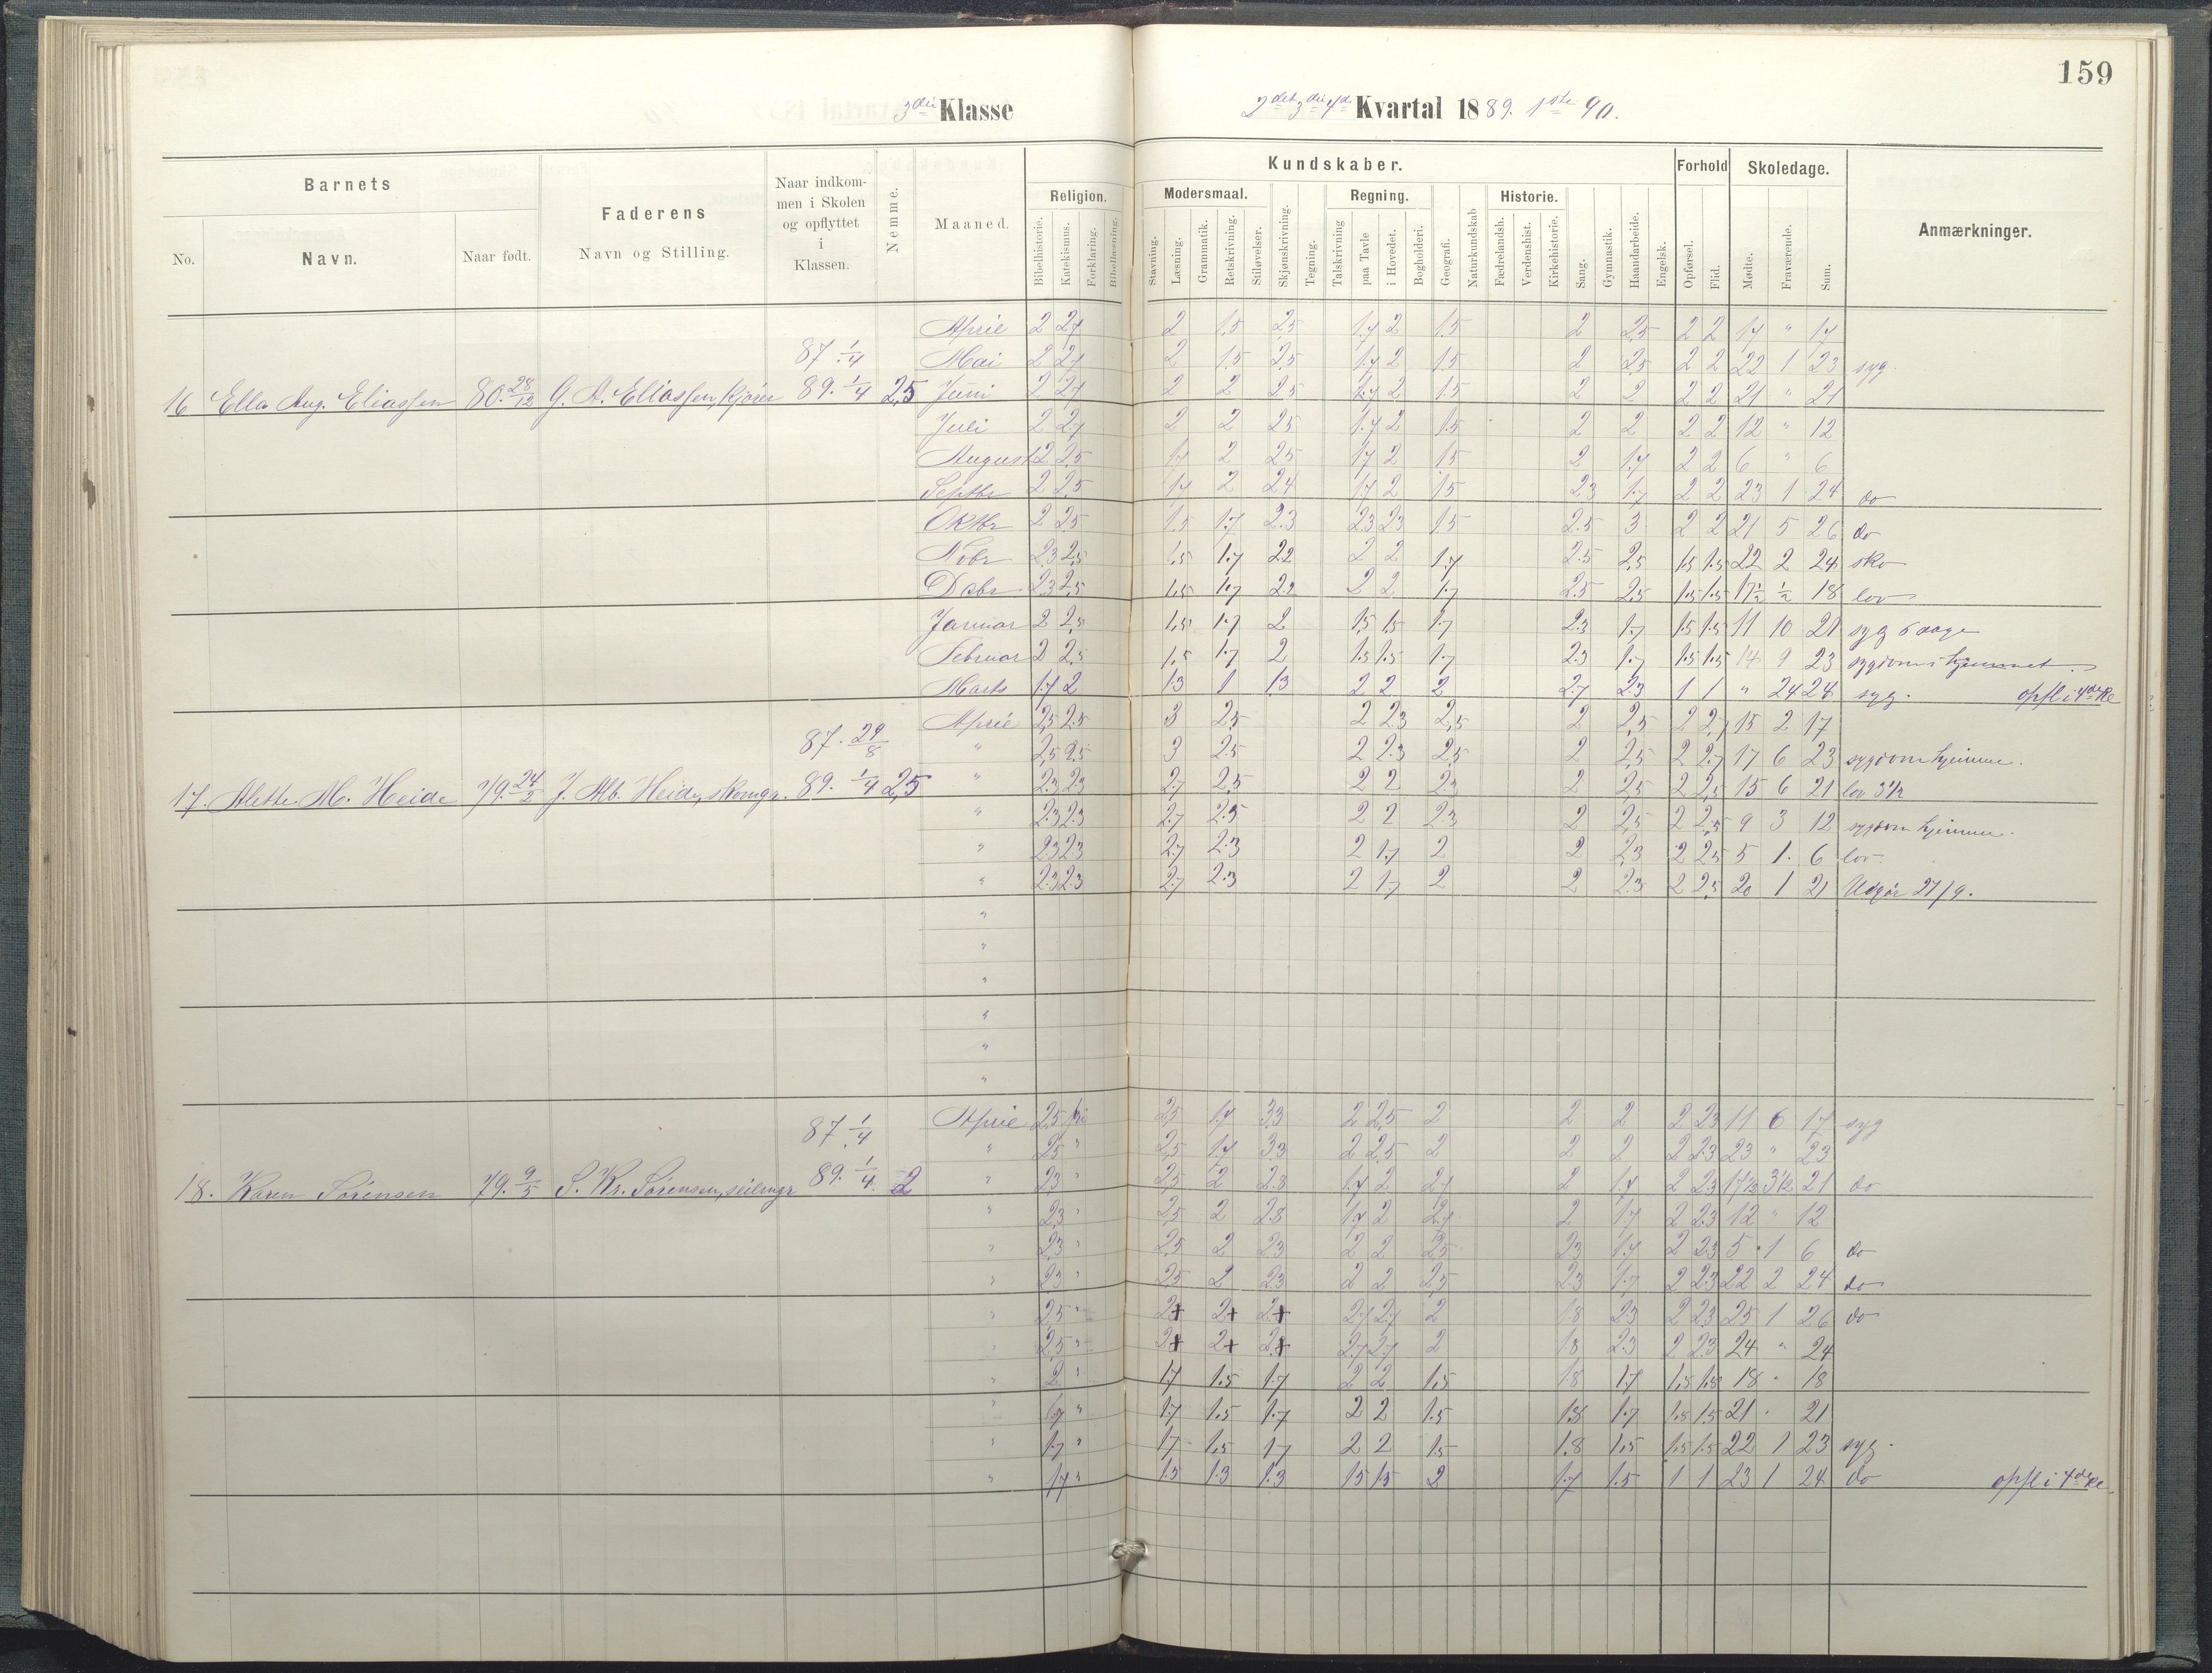 159
3die Klasse
2det 3die 4de Kvartal 1889. 1ste 90.
Barnets
Faderens
Naar indkommen i Skolen og opflyttet i Klassen.
Nemme.
Maaned.
Kundskaber.
Forhold
Skoledage.
Anmærkninger.
No.
Navn.
Naar født.
Navn og Stilling.
Religion.
Modersmaal.
Regning.
Historie.
Bibelhistorie.
Katekismus.
Forklaring.
Bibellæsning.
Stavning.
Læsning.
Grammatik.
Retskrivning.
Stiløvelser.
Skjønskrivning.
Tegning.
Talskrivning
paa Tavle
i Hovedet.
Bogholderi.
Geografi.
Naturkundskab
Fædrelandsh.
Verdenshist.
Kirkehistorie.
Sang.
Gymnastik.
Haandarbeide.
Engelsk.
Opførsel.
Flid.
Mødte.
Fraværende.
Sum.
April 2 2,7 2 1,5 2,5 1,7 2 1,5 2 2,5 2 2 17 " 17
87 1/4 Mai 2 2,7 2 1,5 2,5 1,7 2 1,5 2 2,5 2 2 22 1 23 syg.
16 Ella Aug. Eliassen 80. 28/12 G. A. Eliassen, 89. 1/4 2,5 Juni 2 2,7 2 2 2,5 1,7 2 1,5 2 2 2 2 21 " 21
Juli 2 2,7 2 2 2,5 1,7 2 1,5 2 2 2 2 12 " 12
August 2 2,5 1,7 2 2,5 1,7 2 1,5 2 1,7 2 2 6 " 6
Septbr 2 2,5 1,7 2 2,4 1,7 2 1,5 2,3 1,7 2 2 23 1 24 do
Oktbr 2 2,5 1,5 1,7 2,3 2,3 2,3 1,5 2,5 3 2 2 21 5 26 do
Nobr 2,3 2,5 1,5 1,7 2,2 2 2 1,7 2,5 2,5 1,5 1,5 22 2 24 sko
Debr 2,3 2,5 1,5 1,7 2,2 2 2 1,7 2,5 2,5 1,5 1,5 17½ ½ 18 lov
Januar 2 2,5 1,5 1,7 2 1,5 1,5 1,7 2,3 1,7 1,5 1,5 11 10 21 syg 5 dage
Februar 2 2,5 1,5 1,7 2 1,5 1,5 1,7 2,3 1,7 1,5 1,5 14 9 23 sygdom i hjemmet.
Marts 1,7 2 1,3 1 1,3 2 2 2 2,7 2,3 1 1 " 24 24 syg. opfl i 4de Kl
April 2,5 2,5 3 2,5 2 2,3 2,5 2 2,5 2 2,7 15 2 17
87. 29/8 " 2,5 2,5 3 2,5 2 2,3 2,5 2 2,5 2 2,7 17 6 23 sygdom hjemme.
17. Alette M. Heide 79. 24/2 J. Alb. Heide, skomgr. 89. 1/4 2,5 " 2,3 2,3 2,7 2,5 2 2 2,3 2 2,5 2 2,5 15 6 21 lov 3½
" 2,3 2,3 2,7 2,3 2 2 2,3 2 2,5 2 2,5 9 3 12 sygdom hjemme.
" 2,3 2,3 2,7 2,3 2 1,7 2 2 2,3 2 2,5 5 1. 6 lov.
" 2,3 2,3 2,7 2,3 2 1,7 2 2 2,3 2 2,5 20 1 21 Udgår 27/9.
"
"
"
"
"
"
April 2,5 2,5 1,7 3,3 2 2,5 2 2 2 2 2,3 11 6 17 syg
87 1/4 " 2,5 " 2,5 1,7 3,3 2 2,5 2 2 2 2 2,3 23 " 23
18. Karen Sörensen 79. 9/5 S. Kr. Sörensen, seilmgr 89. 1/4. 2 " 2,3 " 2,5 2 2,8 1,7 2 2,7 2 1,7 2 2,3 17½ 3½ 21 do
" 2,3 " 2,5 2 2,8 1,7 2 2,7 2 1,7 2 2,3 12 " 12
" 2,3 " 2,5 2 2,3 2 2 2,5 2,3 1,7 2 2,3 5 1 6 do
" 2,3 " 2,5 2 2,3 2 2 2,5 2,3 1,7 2 2,3 22 2 24 do
" 2,5 " 2+ 2+ 2+ 2,7 2,7 2 1,8 2,3 2 2,3 25 1 26 do
" 2,5 " 2+ 2+ 2+ 2,7 2,7 2 1,8 2,3 2 2,3 24 " 24
" 2 " 1,7 1,5 1,7 2 2 1,5 1,8 1,7 1,5 1,8 18 " 18
" 1,7 " 1,7 1,5 1,7 2 2 1,5 1,8 1,7 1,8 1,5 21 " 21
" 1,7 " 1,7 1,5 1,7 2 2 1,5 1,8 1,5 1,5 1,5 22 1 23 syg.
" 1,7 " 1,5 1,3 1,3 1,5 1,5 2 1,7 1,5 1 1 23 1 24 do opfl i 4de Kl.